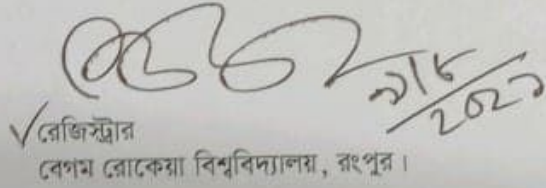 রেজিস্ট্রার
বেগম রোকেয়া বিশ্ববিদ্যালয়, রংপুর।